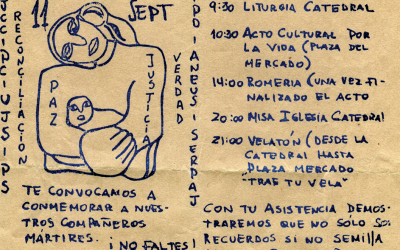 11 SEPT
RECONCILIACIÓN
PAZ
JUSTICIA
VERDAD
TE CONVOCAMOS A
CONMEMORAR A NUES-
TROS COMPAÑEROS
MÁRTIRES.
¡NO FALTES!
9:30 LITURGIA CATEDRAL
10:30 ACTO CULTURAL POR
LA VIDA (PLAZA DEL
MERCADO)
14:00 ROMERIA (UNA VEZ FI-
NALIZADO EL ACTO
20:00 MISA IGLESIA CATEDRAL
21:00 VELATÓN (DESDE LA
CATEDRAL HASTA
PLAZA MERCADO
"TRAE TU VELA"
CON TU ASISTENCIA DEMOS-
TRAREMOS QUE NO SÓLO SON
RECUERDOS SI NO SEMILLA